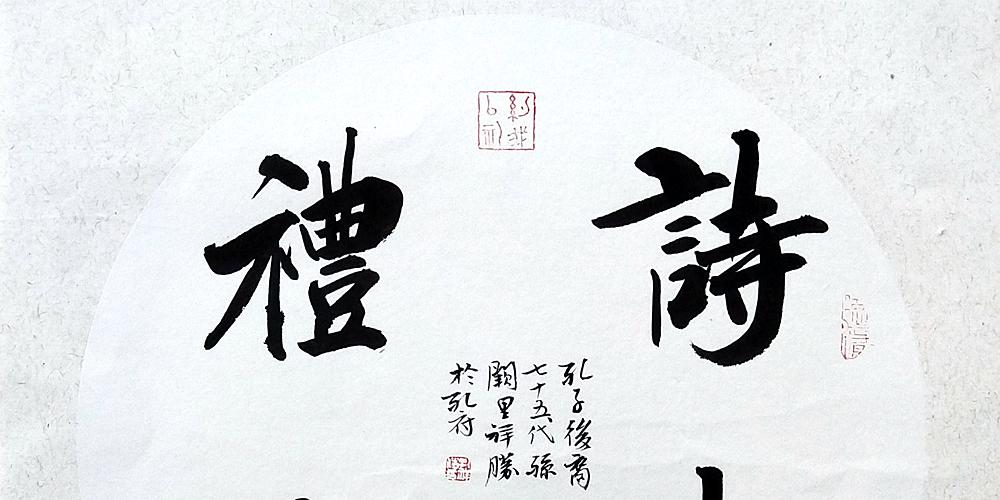 詩
禮
孔子後裔
七十五代孫
闕里祥勝
於孔府